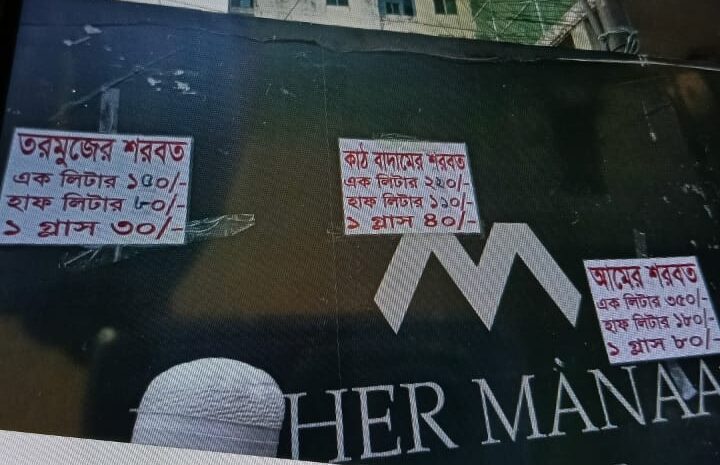 তরমুজের শরবত
এক লিটার ১৫০/-
হাফ লিটার ৮০/-
১ গ্লাস ৩০/-
কাঠ বাদামের শরবত
এক লিটার ২২০/-
হাফ লিটার ১১০/-
১ গ্লাস ৪০/-
আমের শরবত
এক লিটার ৩৫০/-
হাফ লিটার ১৮০/-
১ গ্লাস ৮০/-
HER MÀNAA